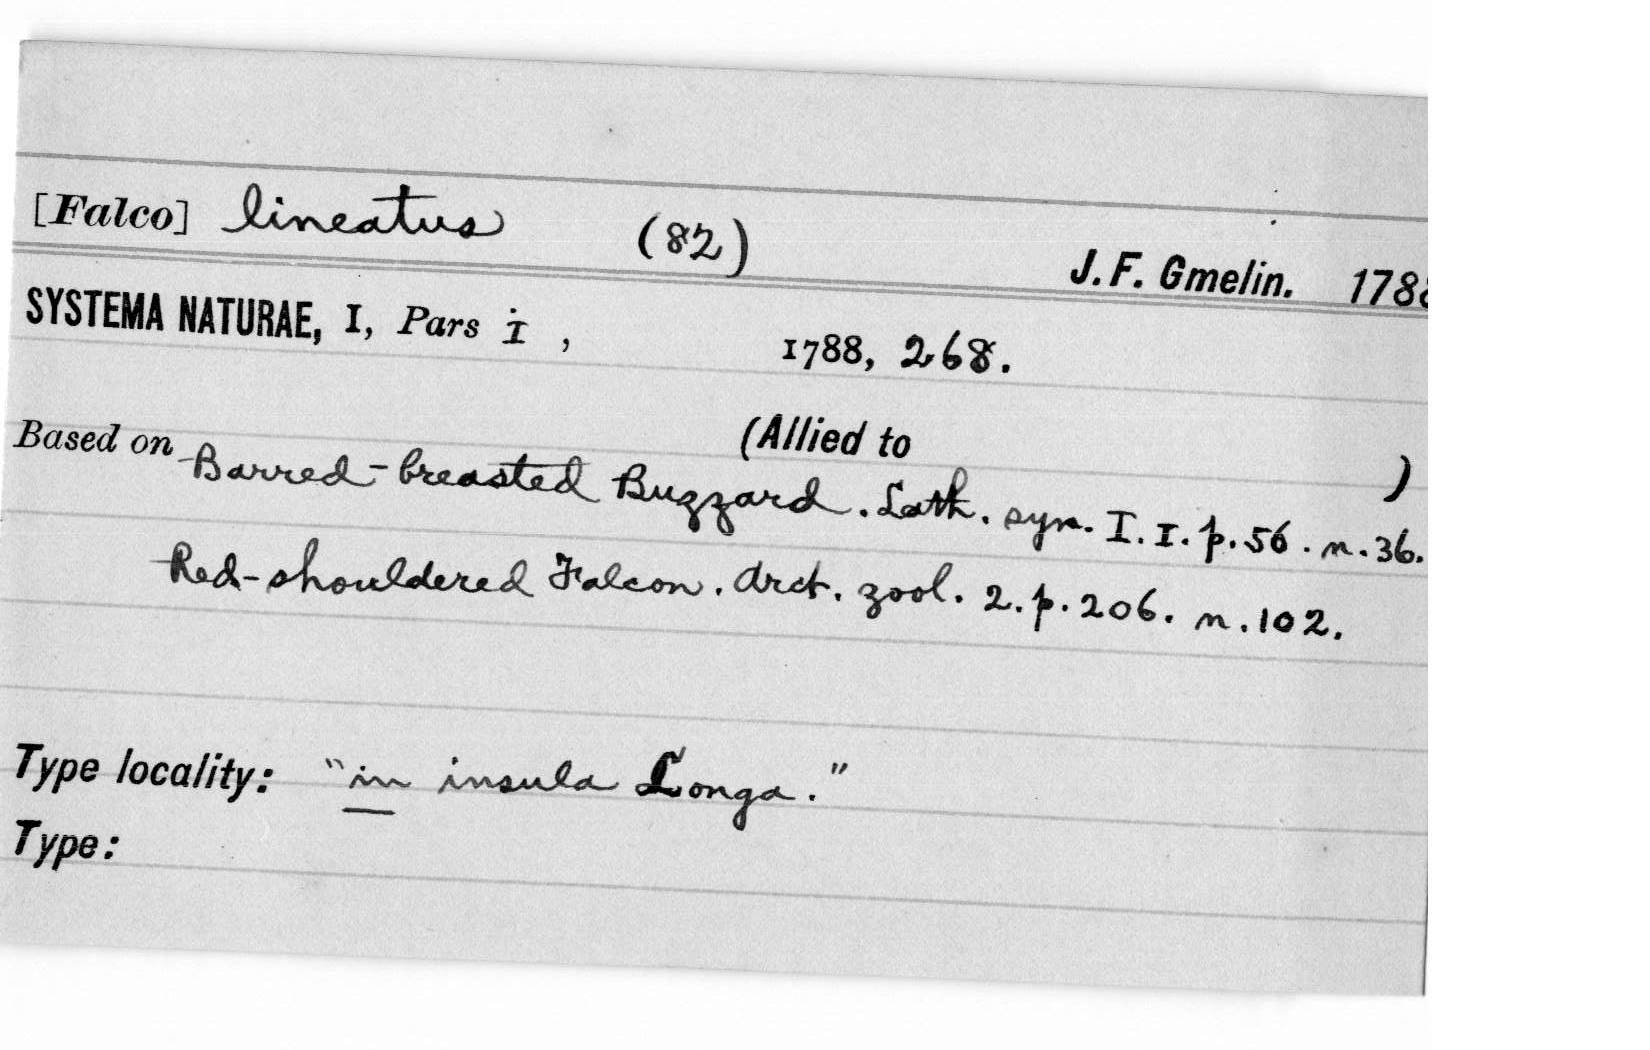 [Falco] lineatus (82) J. F. Gmelin. 1788
SYSTEMA NATURAE, I, Pars i, 1788, 268.
Based on (Allied to )
Barred-breasted Buzzard. Lath. syn. I. 1. p. 56. n. 36.
Red-shouldered Falcon. Arct. zool. 2. p. 206. n. 102.
Type locality: "in insula Longa."
Type: